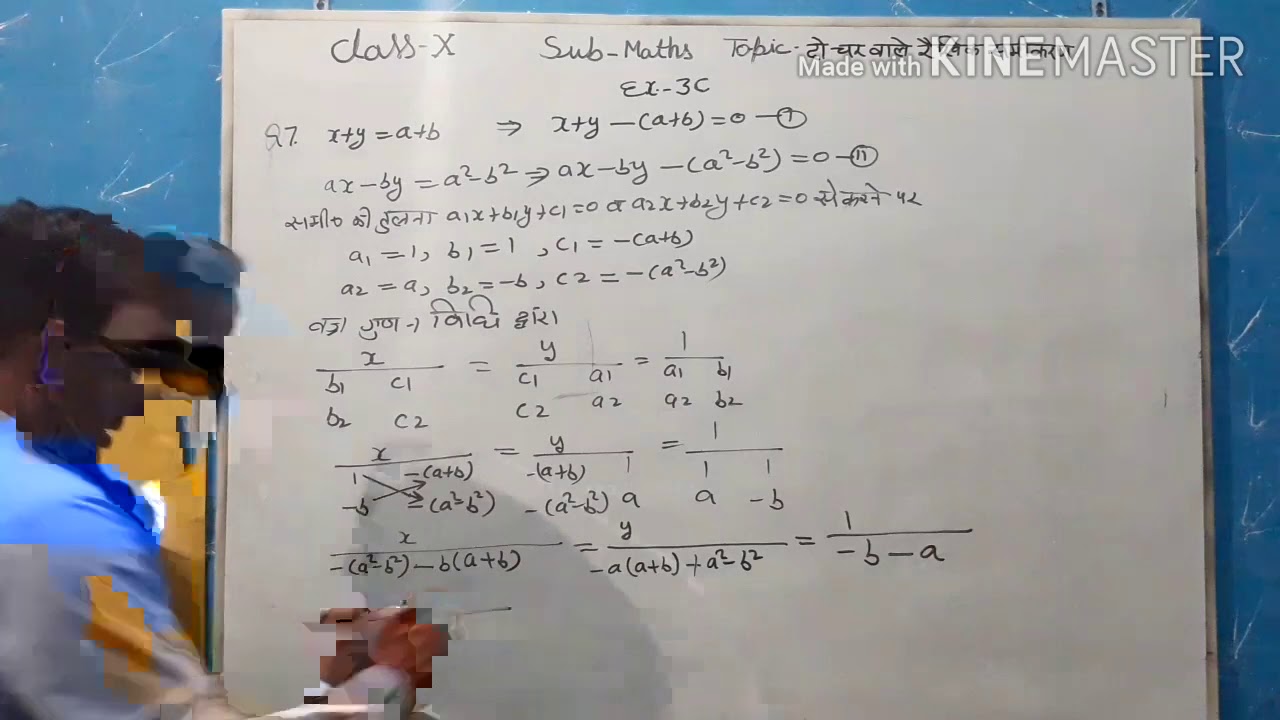 Class-X Sub-Maths Topic- दो चर वाले रैखिक समीकरण
Made with KINEMASTER
Ex-3C
Q7. x+y=a+b ⇒ x+y-(a+b)=0 -(I)
ax-by=a²-b² ⇒ ax-by-(a²-b²)=0 -(II)
समी० की तुलना a₁x+b₁y+c₁=0 व a₂x+b₂y+c₂=0 से करने पर
a₁=1, b₁=1, c₁=-(a+b)
a₂=a, b₂=-b, c₂=-(a²-b²)
वज्र गुणन विधि द्वारा
x = y = 1
b₁ c₁ c₁ a₁ a₁ b₁
b₂ c₂ c₂ a₂ a₂ b₂
x = y = 1
1 -(a+b) -(a+b) 1 1 1
-b -(a²-b²) -(a²-b²) a a -b
x = y = 1
-(a²-b²)-b(a+b) -a(a+b)+a²-b² -b-a